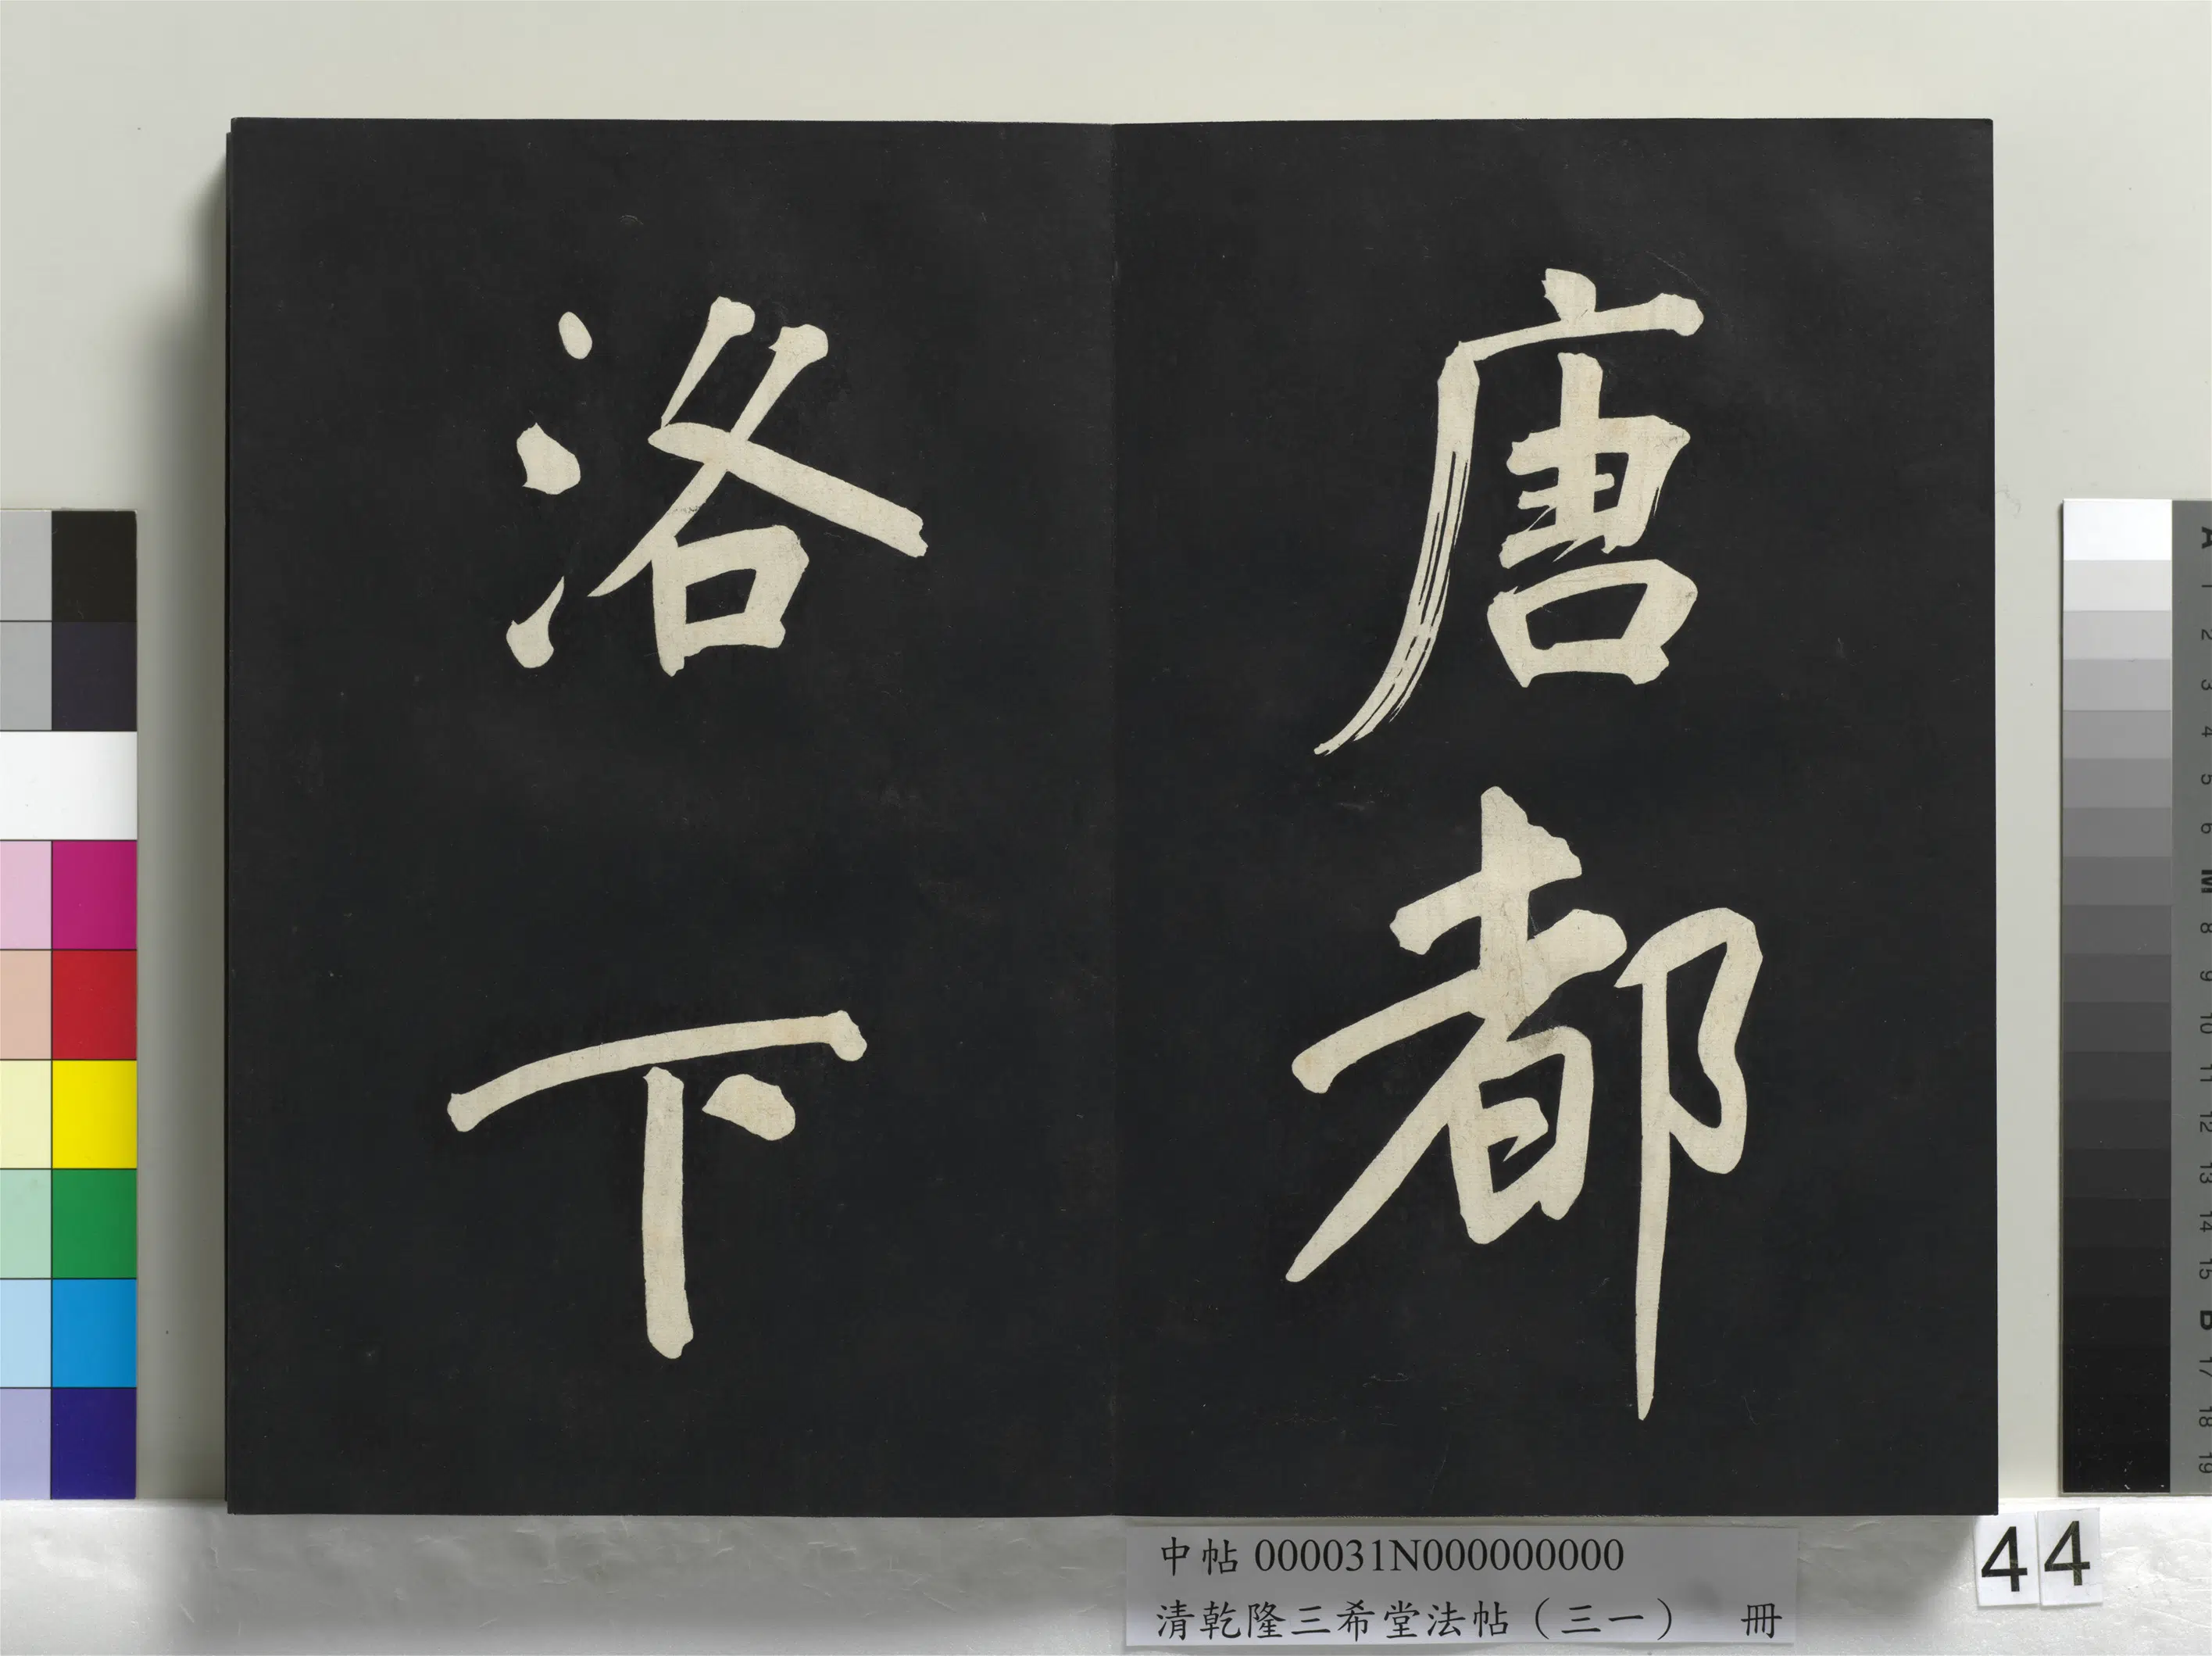 唐都
洛下
中帖 000031N000000000
清乾隆三希堂法帖（三一） 冊
44
A
1
2
3
4
5
6
M
8
9
10
11
12
13
14
15
B
17
18
19